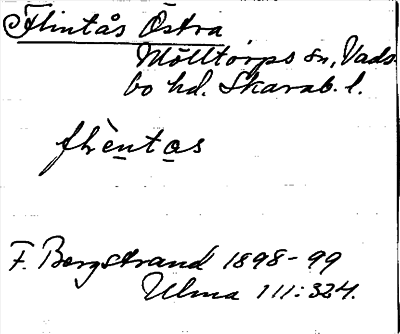 Flintås Östra
Mölltorps sn, Vads-
bo hd. Skarab. l.
flèntas
F. Bergstrand 1898-99
Ulma 111:324.